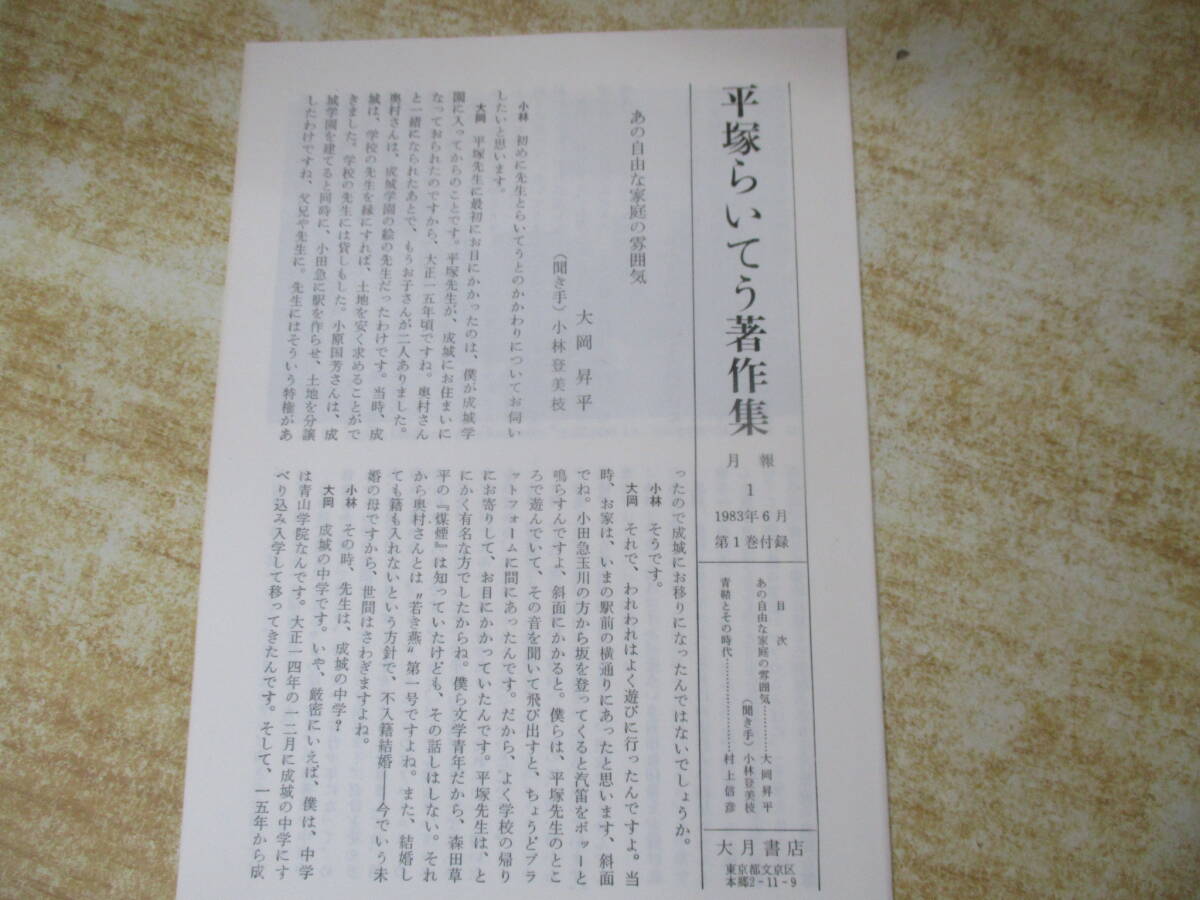 平塚らいてう著作集
月報
1
1983年6月
第1巻付録
目次
あの自由な家庭の雰囲気…………大岡昇平
(聞き手)小林登美枝
青鞜とその時代…………………村上信彦
大月書店
東京都文京区
本郷2-11-9
あの自由な家庭の雰囲気
大岡昇平
(聞き手)小林登美枝
小林 初めに先生とらいてうとのかかわりについてお伺い
したいと思います。
大岡 平塚先生に最初にお目にかかったのは、僕が成城学
園に入ってからのことです。平塚先生が、成城にお住まいに
なっておられたのですから、大正一五年頃ですね。奥村さん
と一緒になられたあとで、もうお子さんが二人ありました。
奥村さんは、成城学園の絵の先生だったわけです。当時、成
城は、学校の先生を縁にすれば、土地を安く求めることがで
きました。学校の先生には貸しもした。小原国芳さんは、成
城学園を建てると同時に、小田急に駅を作らせ、土地を分譲
したわけですね、父兄や先生に。先生にはそういう特権があ
ったので成城にお移りになったんではないでしょうか。
小林 そうです。
大岡 それで、われわれはよく遊びに行ったんですよ。当
時、お家は、いまの駅前の横通りにあったと思います、斜面
でね。小田急玉川の方から坂を登ってくると汽笛をボーッと
鳴らすんですよ、斜面にかかると。僕らは、平塚先生のとこ
ろで遊んでいて、その音を聞いて飛び出すと、ちょうどプラ
ットフォームに間にあったんです。だから、よく学校の帰り
にお寄りして、お目にかかっていたんです。平塚先生は、と
にかく有名な方でしたからね。僕ら文学青年だから、森田草
平の『煤煙』は知っていたけども、その話しはしない。それ
から奥村さんとは〝若き燕〟第一号ですよね。また、結婚し
ても籍も入れないという方針で、不入籍結婚――今でいう未
婚の母ですから、世間はさわぎますよね。
小林 その時、先生は、成城の中学?
大岡 成城の中学です。いや、厳密にいえば、僕は、中学
は青山学院なんです。大正一四年の一二月に成城の中学にす
べり込み入学して移ってきたんです。そして、一五年から成